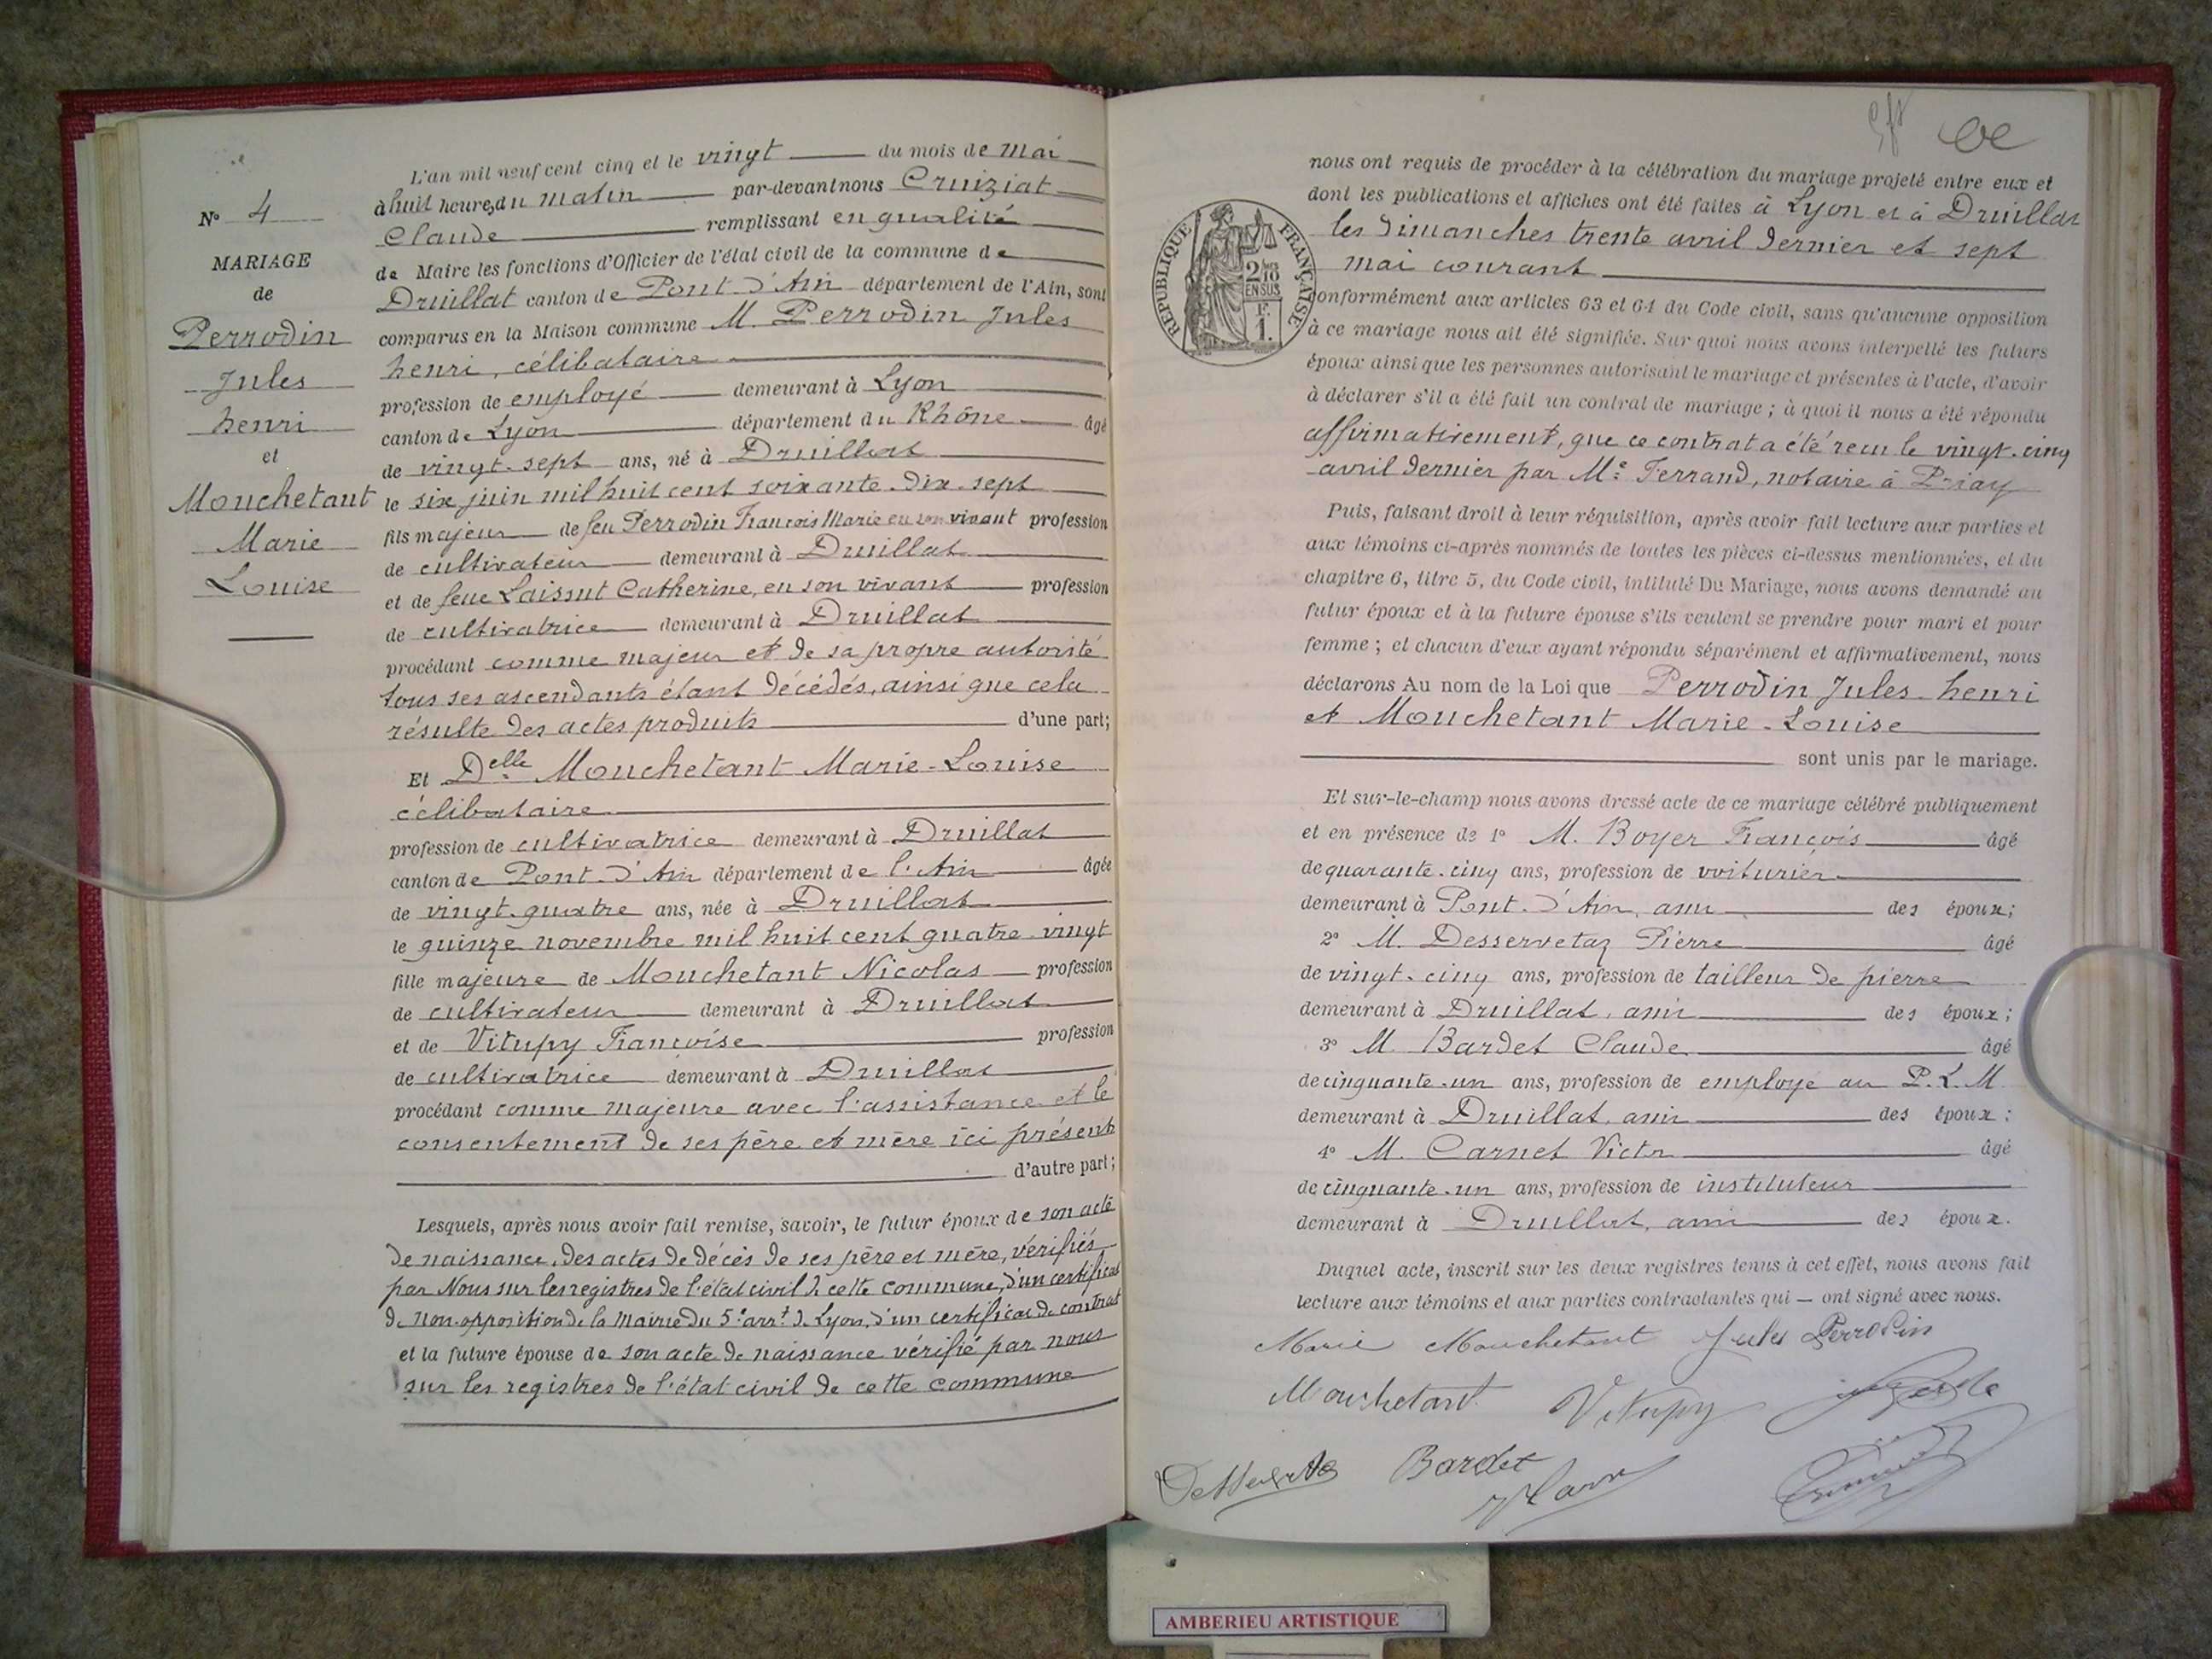 L'an mil neuf cent cinq et le vingt du mois de Mai
à huit heures du matin par-devant nous Cruiziat
Claude remplissant en qualité
de Maire les fonctions d'Officier de l'état civil de la commune de
Druillat canton de Pont-d'Ain département de l'Ain, sont
comparus en la Maison commune M. Perrodin Jules
henri, célibataire
profession de employé demeurant à Lyon
canton de Lyon département du Rhône âgé
de vingt-sept ans, né à Druillat
le six juin mil huit cent soixante-dix-sept
fils majeur de feu Perrodin François Marie en son vivant profession
de cultivateur demeurant à Druillat
et de feue Laissut Catherine, en son vivant profession
de cultivatrice demeurant à Druillat
procédant comme majeur et de sa propre autorité
tous ses ascendants étant décédés, ainsi que cela
résulte des actes produits d'une part;
Et Delle Mouchetant Marie-Louise
célibataire
profession de cultivatrice demeurant à Druillat
canton de Pont-d'Ain département de l'Ain âgée
de vingt-quatre ans, née à Druillat
le quinze novembre mil huit cent quatre-vingt
fille majeure de Mouchetant Nicolas profession
de cultivateur demeurant à Druillat
et de Vitupy Françoise profession
de cultivatrice demeurant à Druillat
procédant comme majeure avec l'assistance et le
consentement de ses père et mère ici présents
d'autre part;
Lesquels, après nous avoir fait remise, savoir, le futur époux de son acte
de naissance, des actes de décès de ses père et mère, vérifiés
par Nous sur les registres de l'état civil de cette commune, d'un certificat
de non-opposition de la Mairie du 5e arrt de Lyon, d'un certificat de contrat
et la future épouse de son acte de naissance vérifié par nous
sur les registres de l'état civil de cette commune
No 4
MARIAGE
de
Perrodin
Jules
henri
et
Mouchetant
Marie
Louise
nous ont requis de procéder à la célébration du mariage projeté entre eux et
dont les publications et affiches ont été faites à Lyon et à Druillat
les Dimanches trente avril dernier et sept
mai courant
conformément aux articles 63 et 64 du Code civil, sans qu'aucune opposition
à ce mariage nous ait été signifiée. Sur quoi nous avons interpellé les futurs
époux ainsi que les personnes autorisant le mariage et présentes à l'acte, d'avoir
à déclarer s'il a été fait un contrat de mariage; à quoi il nous a été répondu
affirmativement, que ce contrat a été recu le vingt-cinq
avril dernier par Me Ferrand, notaire à Priay
Puis, faisant droit à leur réquisition, après avoir fait lecture aux parties et
aux témoins ci-après nommés de toutes les pièces ci-dessus mentionnées, et du
chapitre 6, titre 5, du Code civil, intitulé Du Mariage, nous avons demandé au
futur époux et à la future épouse s'ils veulent se prendre pour mari et pour
femme; et chacun d'eux ayant répondu séparément et affirmativement, nous
déclarons Au nom de la Loi que Perrodin Jules-henri
et Mouchetant Marie-Louise
sont unis par le mariage.
Et sur-le-champ nous avons dressé acte de ce mariage célébré publiquement
et en présence de 1o M. Boyer François âgé
de quarante-cinq ans, profession de voiturier
demeurant à Pont-d'Ain, ami des époux;
2o M. Desservetaz Pierre âgé
de vingt-cinq ans, profession de tailleur de pierre
demeurant à Druillat, ami des époux;
3o M. Bardet Claude âgé
de cinquante-un ans, profession de employé au P.L.M.
demeurant à Druillat, ami des époux;
4o M. Carnet Victor âgé
de cinquante-un ans, profession de instituteur
demeurant à Druillat, ami des époux.
Duquel acte, inscrit sur les deux registres tenus à cet effet, nous avons fait
lecture aux témoins et aux parties contractantes qui — ont signé avec nous.
Marie Mouchetant Jules Perrodin
Mouchetant Vitupy
Bardet
RÉPUBLIQUE FRANÇAISE
2/10
EN SUS
1 F.
AMBERIEU ARTISTIQUE